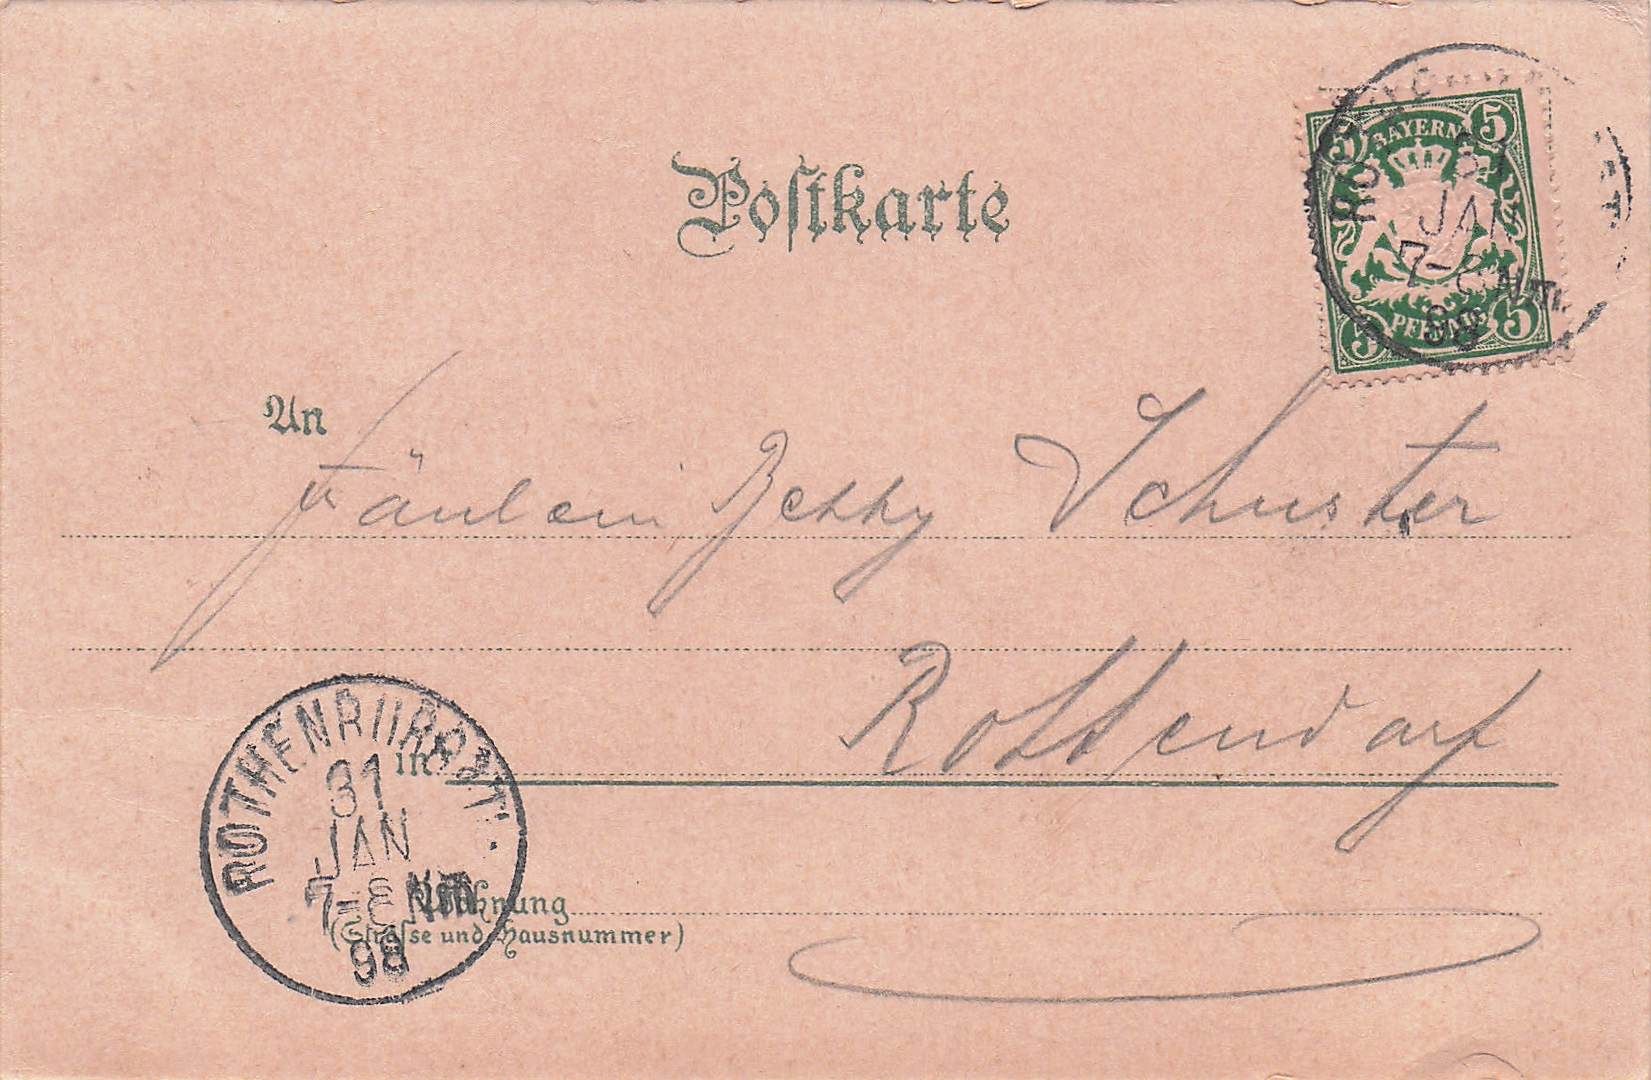 Postkarte
BAYERN
5 5
5 5
PFENNIG
31
JAN
7-8 Nm.
98
An
Fräulein Betty Schuster
in Rottendorf
ROTHENBURG T.
31
JAN
7-8 Nm
98
Wohnung
(Straſse und Hausnummer)